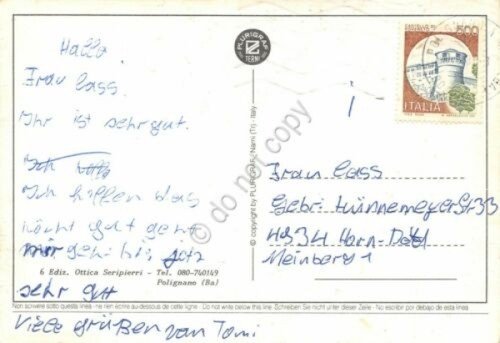 Hallo
Frau Cass.
Ihr ist sehr gut.
Ich
Ich hoffen das
gut geht
mir geht bis jetz
sehr gtt
Viele grüßen van Tomi
PLURIGRAF
TERNI
© copyright by PLURIGRAF, Narni (Tr) - Italy
do not copy
500
ITALIA
i -
Frau Cass
Gebr.
4934 Horn-Bad
Meinberg 1
6 Ediz. Ottica Seripierri - Tel. 080-740149
Polignano (Ba)
Non scrivere sotto questa linea - ne rien écrire au-dessous de cette ligne - Do not write below this line - Schreiben Sie nicht unter dieser Zeile - No escribir por debajo de esta linea